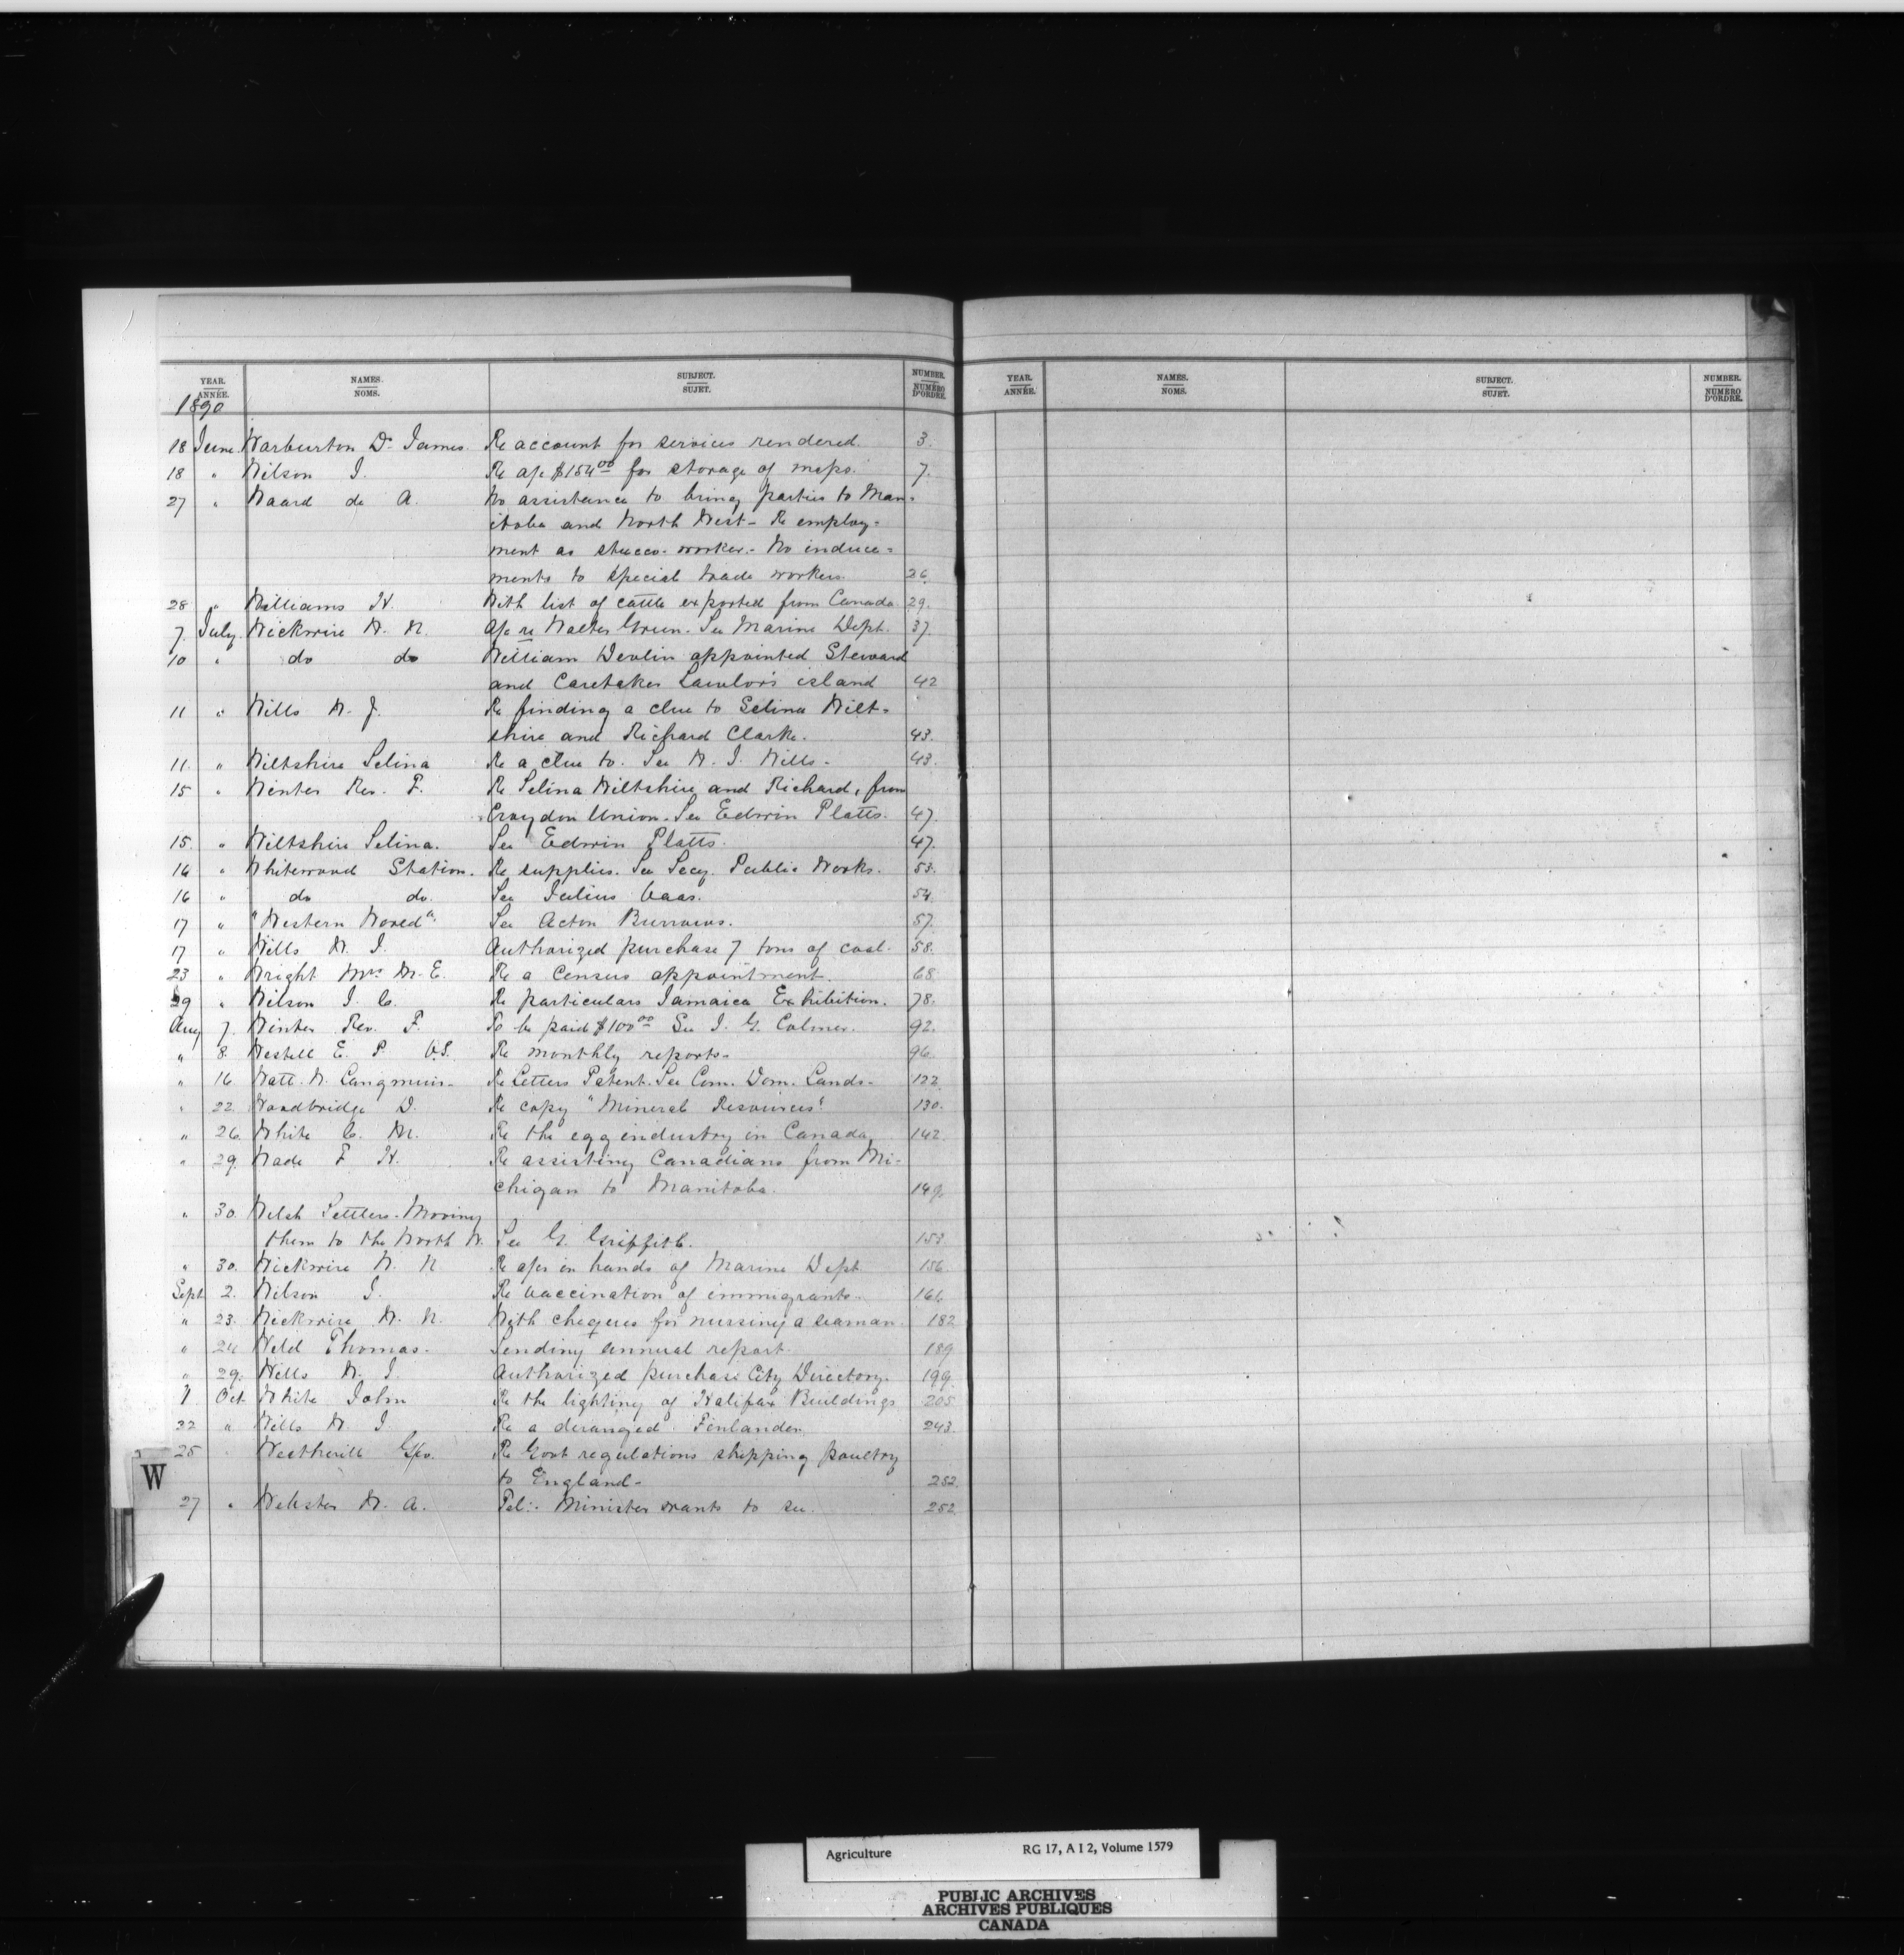 YEAR. NAMES. SUBJECT. NUMBER.
ANNÉE. NOMS. SUJET. NUMÉRO D'ORDRE.
1890
18 June. Warburton Dr. James. Re account for services rendered. 3.
18 " Wilson J. Re a/c $154.00 for storage of maps. 7.
27 " Waard de A. No assistance to bring parties to Man-
itoba and North West - Re employ-
ment as stucco-worker. - No induce-
ments to special trade workers. 26.
28 " Williams H. With list of cattle exported from Canada. 29.
7. July. Wickwire W. N. A/c re Walter Green. See Marine Dept. 37.
10 " do do William Devlin appointed Steward
and Caretaker Lawlor's island 42
11 " Wills W. J. Re finding a clue to Selina Wilt-
shire and Richard Clark. 43.
11. " Wiltshire Selina Re a clue to. See W. J. Wills - 43.
15 " Winter Rev. F. Re Selina Wiltshire and Richard, from
Croydon Union. See Edwin Platts. 47.
15. " Wiltshire Selina. See Edwin Platts. 47.
16 " Whitewood Station. Re supplies. See Secy. Public Works. 53.
16 " do do. See Julius 54.
17 " "Western World". See Acton Burrows. 57.
17 " Wills W. J. Authorized purchase 7 tons of coal. 58.
23 " Wright Mrs M. E. Re a Census appointment. 68.
29 " Wilson J. C. Re particulars Jamaica Exhibition. 78.
Aug 7. Winter Rev. F. To be paid $100.00 See J. G. Colmer. 92.
" 8. Westell E. P. V.S. Re monthly reports - 96.
" 16 Watt. W. Langmuir - Re Letters Patent. See Com. Dom. Lands - 122.
" 22. Woodbridge D. Re copy "Mineral Resources" 130.
" 26. White C. M. Re the egg industry in Canada, 142.
" 29. Wade F H. Re assisting Canadians from Mi-
chigan to Manitoba. 149.
" 30. Welsh Settlers - Moving
them to the North W. See G. Griffith. 153
" 30. Wickwire W. N Re a/cs in hands of Marine Dept. 156.
Sept 2. Wilson J. Re vaccination of immigrants - 161.
" 23. Wickwire W. N. With cheques for nursing a seaman. 182
" 24 Weld Thomas - Sending annual report. 189
" 29. Wills W. J. Authorized purchase City Directory. 199.
1 Oct. White John Re the lighting of Halifax Buildings 205
22 " Wills W J Re a deranged Finlander. 243.
25 " Westherill Geo. Re Govt regulations shipping poultry
to England - 252.
27 " Webster W. A. Tel:- Minister wants to see. 252.
W
YEAR. NAMES. SUBJECT. NUMBER.
ANNÉE. NOMS. SUJET. NUMÉRO D'ORDRE.
Agriculture RG 17, A I 2, Volume 1579
PUBLIC ARCHIVES
ARCHIVES PUBLIQUES
CANADA